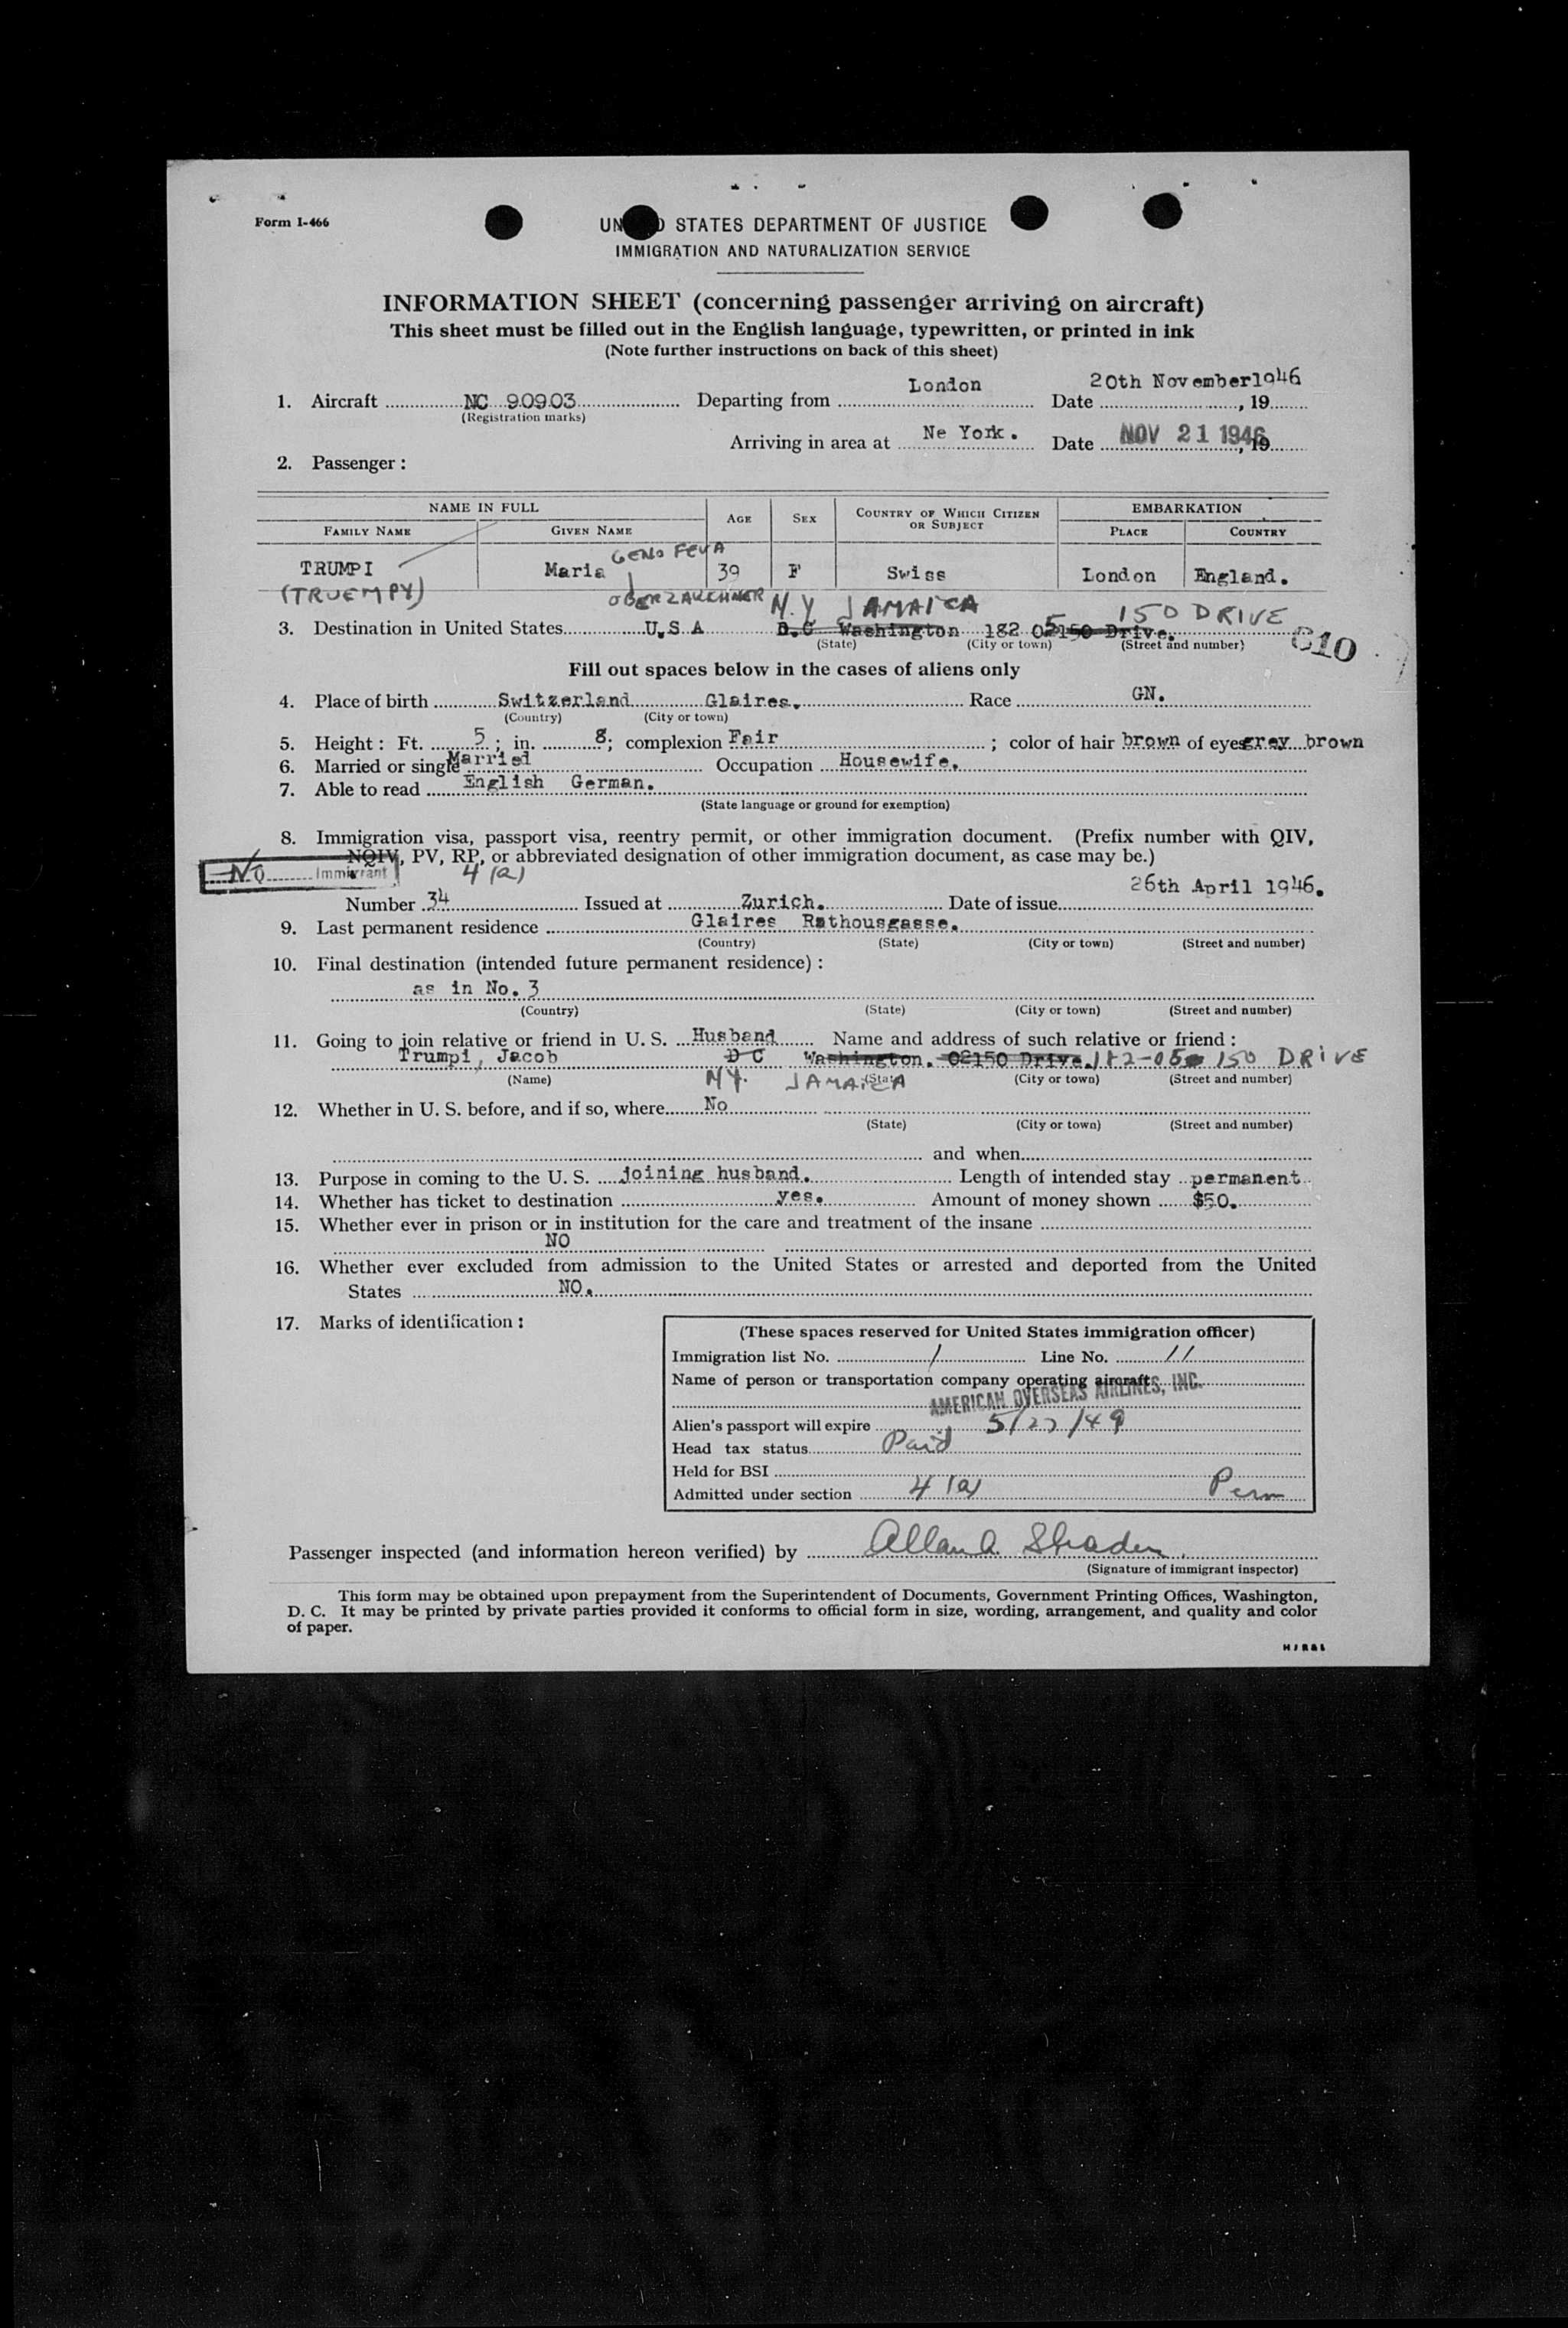 Form I-466
UNITED STATES DEPARTMENT OF JUSTICE
IMMIGRATION AND NATURALIZATION SERVICE
INFORMATION SHEET (concerning passenger arriving on aircraft)
This sheet must be filled out in the English language, typewritten, or printed in ink
(Note further instructions on back of this sheet)
1. Aircraft NC 90903 Departing from London Date 20th November1946, 19
(Registration marks)
Arriving in area at Ne York. Date NOV 21 1946, 19
2. Passenger:
NAME IN FULL AGE SEX COUNTRY OF WHICH CITIZEN OR SUBJECT EMBARKATION
FAMILY NAME GIVEN NAME PLACE COUNTRY
GENOFEVA
TRUMPI Maria 39 F Swiss London England.
(TRUEMPY) N.Y JAMAICA 150 DRIVE
3. Destination in United States U.S A D.C Washington 182 02150 Drive. 5
(State) (City or town) (Street and number) 610
Fill out spaces below in the cases of aliens only
4. Place of birth Switzerland Glaires. Race GN.
(Country) (City or town)
5. Height: Ft. 5; in. 8; complexion Fair; color of hair brown of eyes grey brown
6. Married or single Married Occupation Housewife.
7. Able to read English German.
(State language or ground for exemption)
8. Immigration visa, passport visa, reentry permit, or other immigration document. (Prefix number with QIV,
NQIV, PV, RP, or abbreviated designation of other immigration document, as case may be.)
No Immigrant 4 (a)
Number 34 Issued at Zurich. Date of issue 26th April 1946.
9. Last permanent residence Glaires Rathousgasse.
(Country) (State) (City or town) (Street and number)
10. Final destination (intended future permanent residence):
as in No. 3
(Country) (State) (City or town) (Street and number)
11. Going to join relative or friend in U. S. Husband Name and address of such relative or friend:
Trumpi, Jacob D C Washington. 02150 Drive. 182-05 150 DRIVE
(Name) (State) (City or town) (Street and number)
NY. JAMAICA
12. Whether in U. S. before, and if so, where No
(State) (City or town) (Street and number)
and when
13. Purpose in coming to the U. S. joining husband. Length of intended stay permanent
14. Whether has ticket to destination yes. Amount of money shown $50.
15. Whether ever in prison or in institution for the care and treatment of the insane
NO
16. Whether ever excluded from admission to the United States or arrested and deported from the United
States NO.
17. Marks of identification:
(These spaces reserved for United States immigration officer)
Immigration list No. 1 Line No. 11
Name of person or transportation company operating aircraft
AMERICAN OVERSEAS AIRLINES, INC.
Alien's passport will expire 5/27/49
Head tax status Paid
Held for BSI
Admitted under section 4 (a) Perm
Passenger inspected (and information hereon verified) by Allan A.
(Signature of immigrant inspector)
This form may be obtained upon prepayment from the Superintendent of Documents, Government Printing Offices, Washington,
D. C. It may be printed by private parties provided it conforms to official form in size, wording, arrangement, and quality and color
of paper.